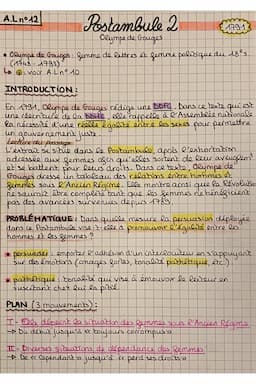 A.L n°12
Postambule 2
1791
Olympe de Gouges
• Olympe de Gouges : femme de lettres et femme politique du 18ᵉ s.
(1748 - 1793)
voir A.L n°10
INTRODUCTION :
En 1791, Olympe de Gouges rédige une DDFC. Dans ce texte qui est
une réécriture de la DDHC, elle rappelle à l'Assemblée nationale
la nécessité d'une réelle égalité entre les sexes pour permettre
un gouvernement juste.
Lecture du passage
L'extrait se situe dans le Postambule, après l'exhortation
adressée aux femmes afin qu'elles sortent de leur aveuglement
et se battent pour leurs droits. Dans ce texte, Olympe de
Gouges dresse un tableau des relations entre hommes et
femmes sous l'Ancien Régime. Elle montre ainsi que la Révolution
ne saurait être complète tant que les femmes ne bénéficient
pas des avancées survenues depuis 1789.
PROBLÉMATIQUE : Dans quelle mesure la persuasion déployée
dans le Postambule vise-t-elle à promouvoir l'égalité entre les
hommes et les femmes ?
persuader : emporter l'adhésion d'un interlocuteur en s'appuyant
sur des émotions (images fortes, tonalité pathétique, etc)
pathétique : tonalité qui vise à émouvoir le lecteur en
suscitant chez lui la pitié.
PLAN (3 mouvements) :
I - Elle dépeint la situation des femmes sous l'Ancien Régime
→ Du début jusqu'à "toujours corrompue"
II - Diverses situations de dépendance des femmes
→ De "dépendante" jusqu'à "perd ses droits"